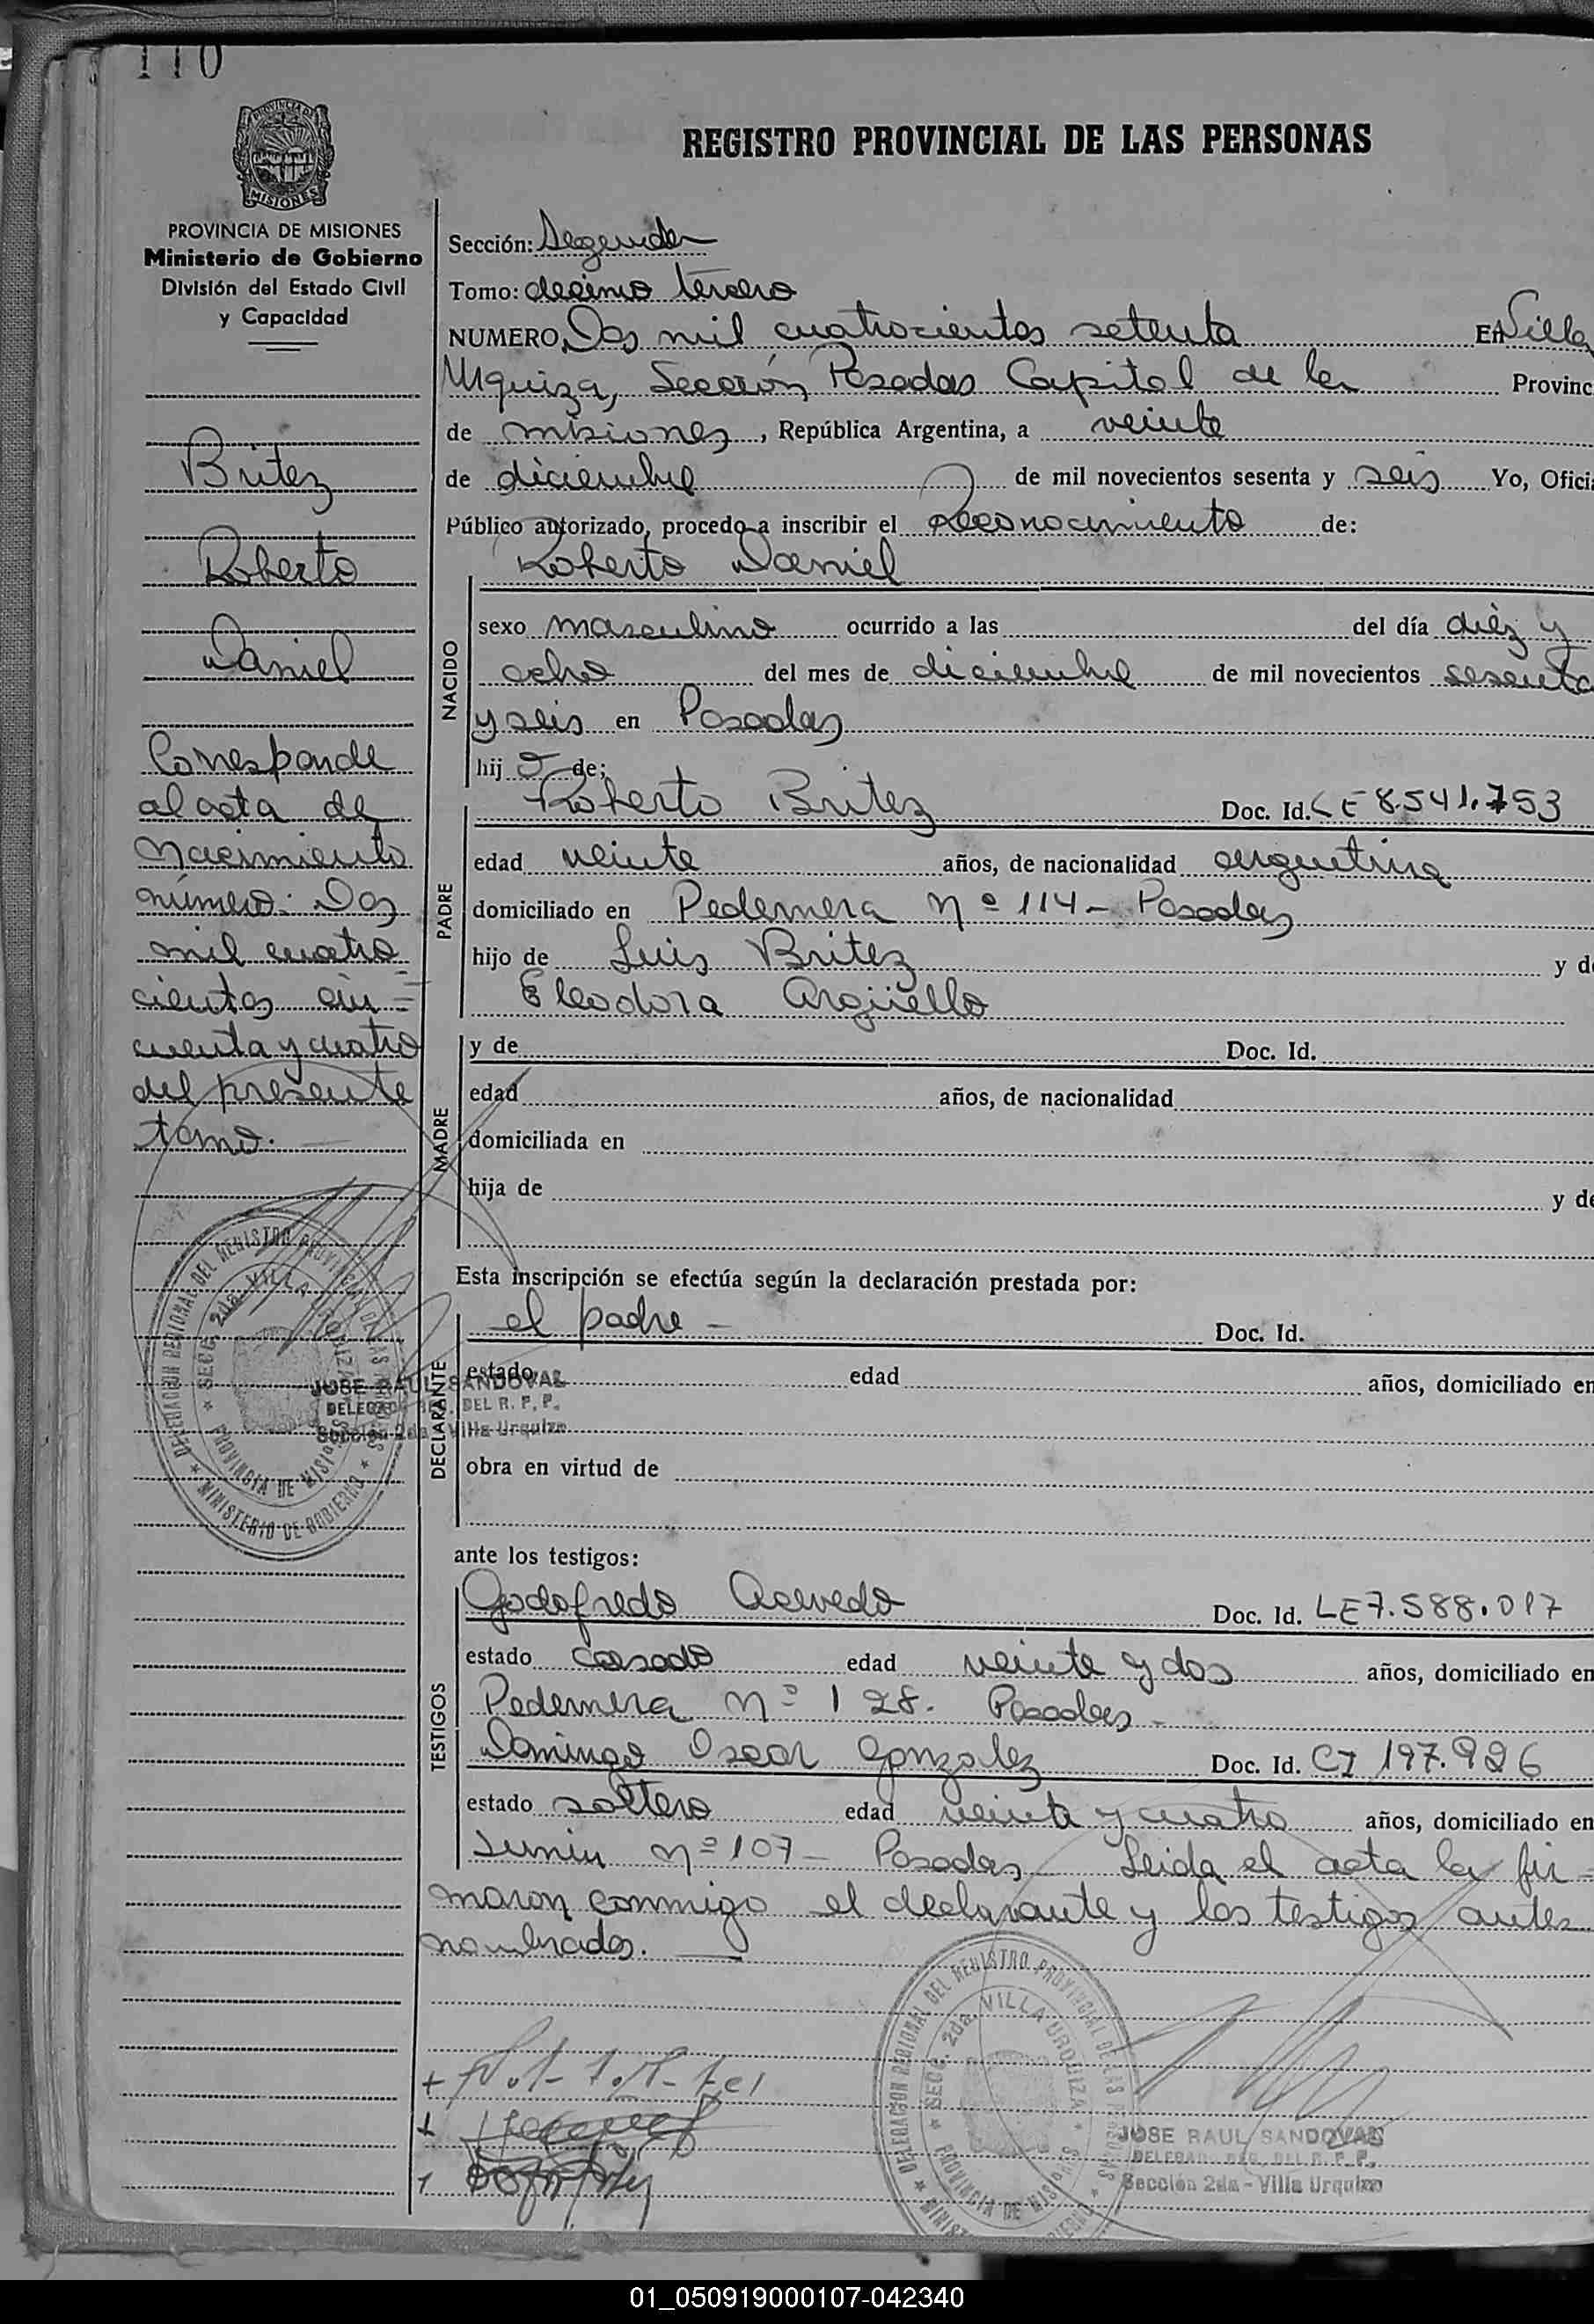 110
PROVINCIA DE MISIONES
PROVINCIA DE MISIONES
Ministerio de Gobierno
División del Estado Civil
y Capacidad
Britez
Roberto
Daniel
Corresponde
al acta de
Nacimiento
número: Dos
mil cuatro
cientos cin=
cuenta y cuatro
del presente
tomo.
DELEGACION REGIONAL DEL REGISTRO PROVINCIAL DE LAS PERSONAS
SECC. 2da. VILLA URQUIZA
PROVINCIA DE MISIONES
MINISTERIO DE GOBIERNO
JOSE RAUL SANDOVAL
DELEGADO REG. DEL R. P. P.
Sección 2da - Villa Urquiza
REGISTRO PROVINCIAL DE LAS PERSONAS
Sección: Segunda
Tomo: decimo tercero
NUMERO Dos mil cuatrocientos setenta EN Villa
Urquiza, Sección Posadas Capital de la Provinc
de misiones, República Argentina, a veinte
de diciembre de mil novecientos sesenta y seis Yo, Ofici
Público autorizado, procedo a inscribir el Reconocimiento de:
Roberto Daniel
NACIDO
sexo masculino ocurrido a las del día diéz y
ocho del mes de diciembre de mil novecientos sesenta
y seis en Posadas
hij o de:
PADRE
Roberto Britez Doc. Id. LE 8.541.753
edad veinte años, de nacionalidad argentina
domiciliado en Pedernera Nº 114 - Posadas
hijo de Luis Britez y de
Eleodora Argüello
MADRE
y de Doc. Id.
edad años, de nacionalidad
domiciliada en
hija de y de
Esta inscripción se efectúa según la declaración prestada por:
DECLARANTE
el padre - Doc. Id.
estado edad años, domiciliado en
obra en virtud de
ante los testigos:
TESTIGOS
Godofredo Acevedo Doc. Id. LE 7.588.017
estado casado edad veinte y dos años, domiciliado en
Pedernera Nº 128. Posadas -
Domingo Oscar Gonzalez Doc. Id. CI 197.926
estado soltero edad veinte y cuatro años, domiciliado en
Junin nº 107 - Posadas Leida el acta la fir=
maron conmigo el declarante y los testigos antes
nombrados.
DELEGACION REGIONAL DEL REGISTRO PROVINCIAL DE LAS PERSONAS
SECC. 2da. VILLA URQUIZA
PROVINCIA DE MISIONES
JOSE RAUL SANDOVAL
DELEGADO REG. DEL R. P. P.
Sección 2da - Villa Urquiza
01_050919000107-042340